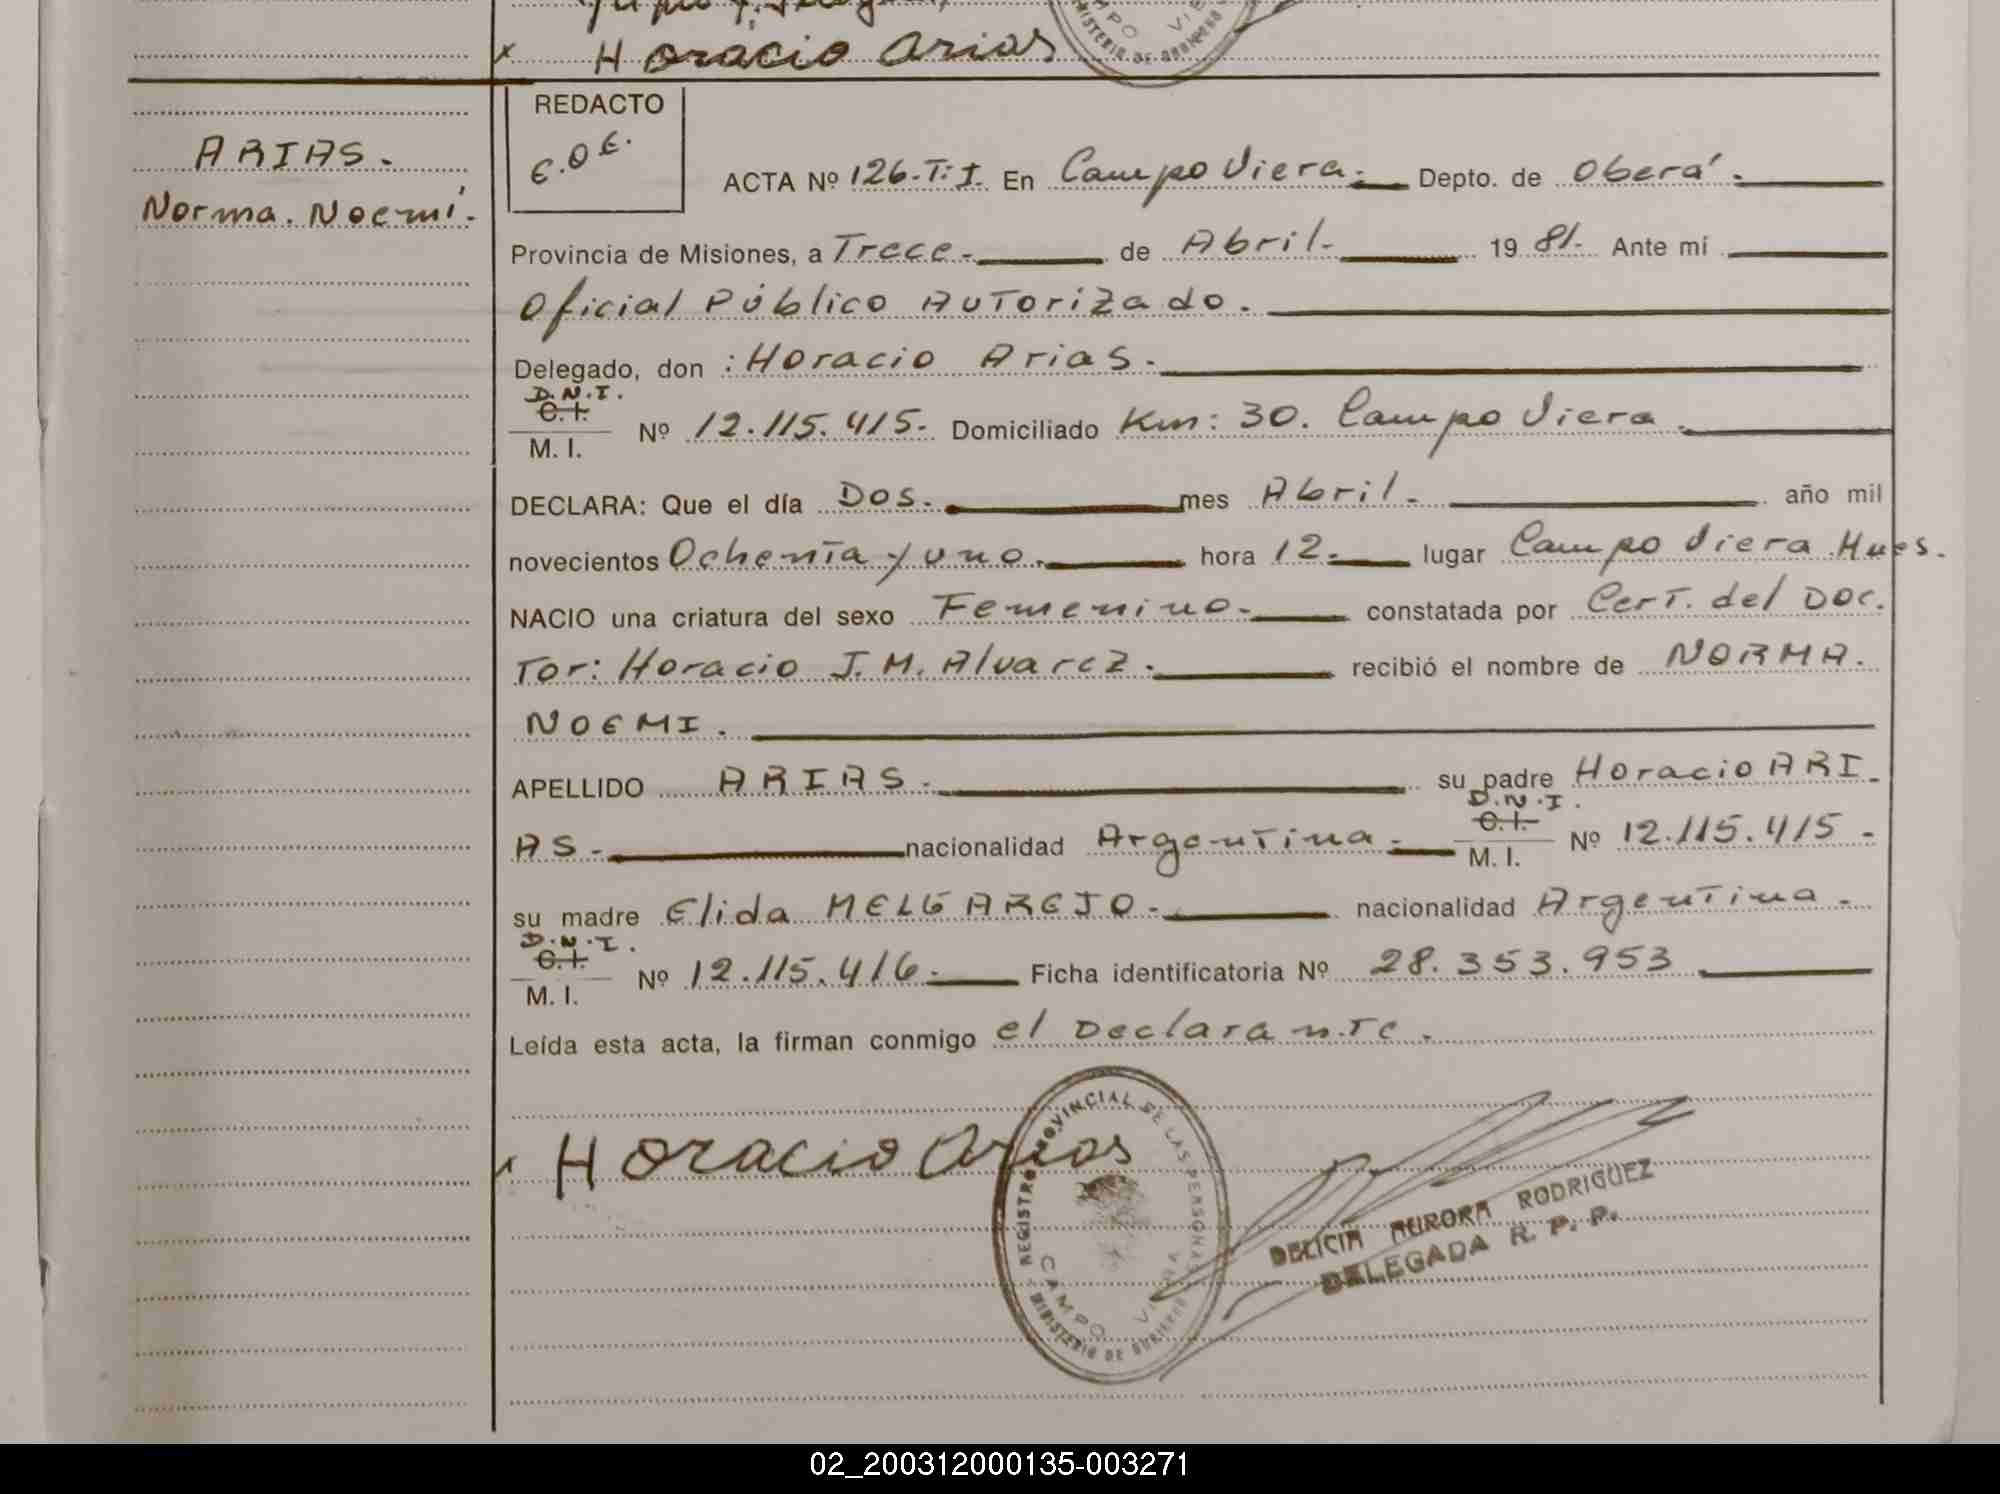 x Horacio Arias
MINISTERIO DE GOBIERNO
ARIAS.
Norma. Noemí.
REDACTO
E.O.E.
ACTA Nº 126.T:I. En Campo Viera. Depto. de Oberá.
Provincia de Misiones, a Trece. de Abril. 19 81. Ante mí
Oficial Público Autorizado.
Delegado, don : Horacio Arias.
D.N.I.
C.I.
M. I.
Nº 12.115.415. Domiciliado Km: 30. Campo Viera.
DECLARA: Que el día Dos. mes Abril. año mil
novecientos Ochenta y uno. hora 12. lugar Campo Viera Mnes.
NACIO una criatura del sexo Femenino. constatada por Cert. del Doc.
tor: Horacio J. M. Alvarez. recibió el nombre de NORMA.
NOEMI.
APELLIDO ARIAS. su padre Horacio ARI
AS. nacionalidad Argentina. D.N.I. C.I. M. I. Nº 12.115.415.
su madre Elida MELGAREJO. nacionalidad Argentina.
D.N.I.
C.I.
M. I.
Nº 12.115.416. Ficha identificatoria Nº 28.353.953
Leída esta acta, la firman conmigo el Declarante.
x Horacio Arias
REGISTRO PROVINCIAL DE LAS PERSONAS
CAMPO VIERA
MINISTERIO DE GOBIERNO
DELICIA AURORA RODRIGUEZ
DELEGADA R. P. P.
02_200312000135-003271